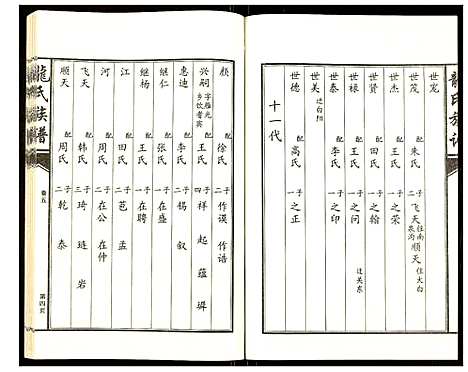 龍氏族譜
世宽
世茂 配 朱氏 二子 飞天 往南泉沟 顺天 住大白
世杰 配 王氏 一子 之荣
世贤 配 田氏 一子 之翰
世禄 配 王氏 一子 之问 迁关东
世泰 配 李氏 一子 之印
世美 迁白阳
世德 配 高氏 一子 之正
十一代
颜 配 徐氏 二子 作谟 作诰
兴嗣 字雁光 乡饮耆宾 配 王氏 四子 祥 起 蕴 墀
惠迪 配 李氏 二子 锡 叙
继仁 配 张氏 一子 在盛
继杨 配 王氏 一子 在聘
江 配 田氏 二子 芑 孟
河 配 周氏 二子 在公 在仲
飞天 配 韩氏 三子 琦 琏 岩
顺天 配 周氏 二子 乾 泰
龍氏族譜
卷五
第四页